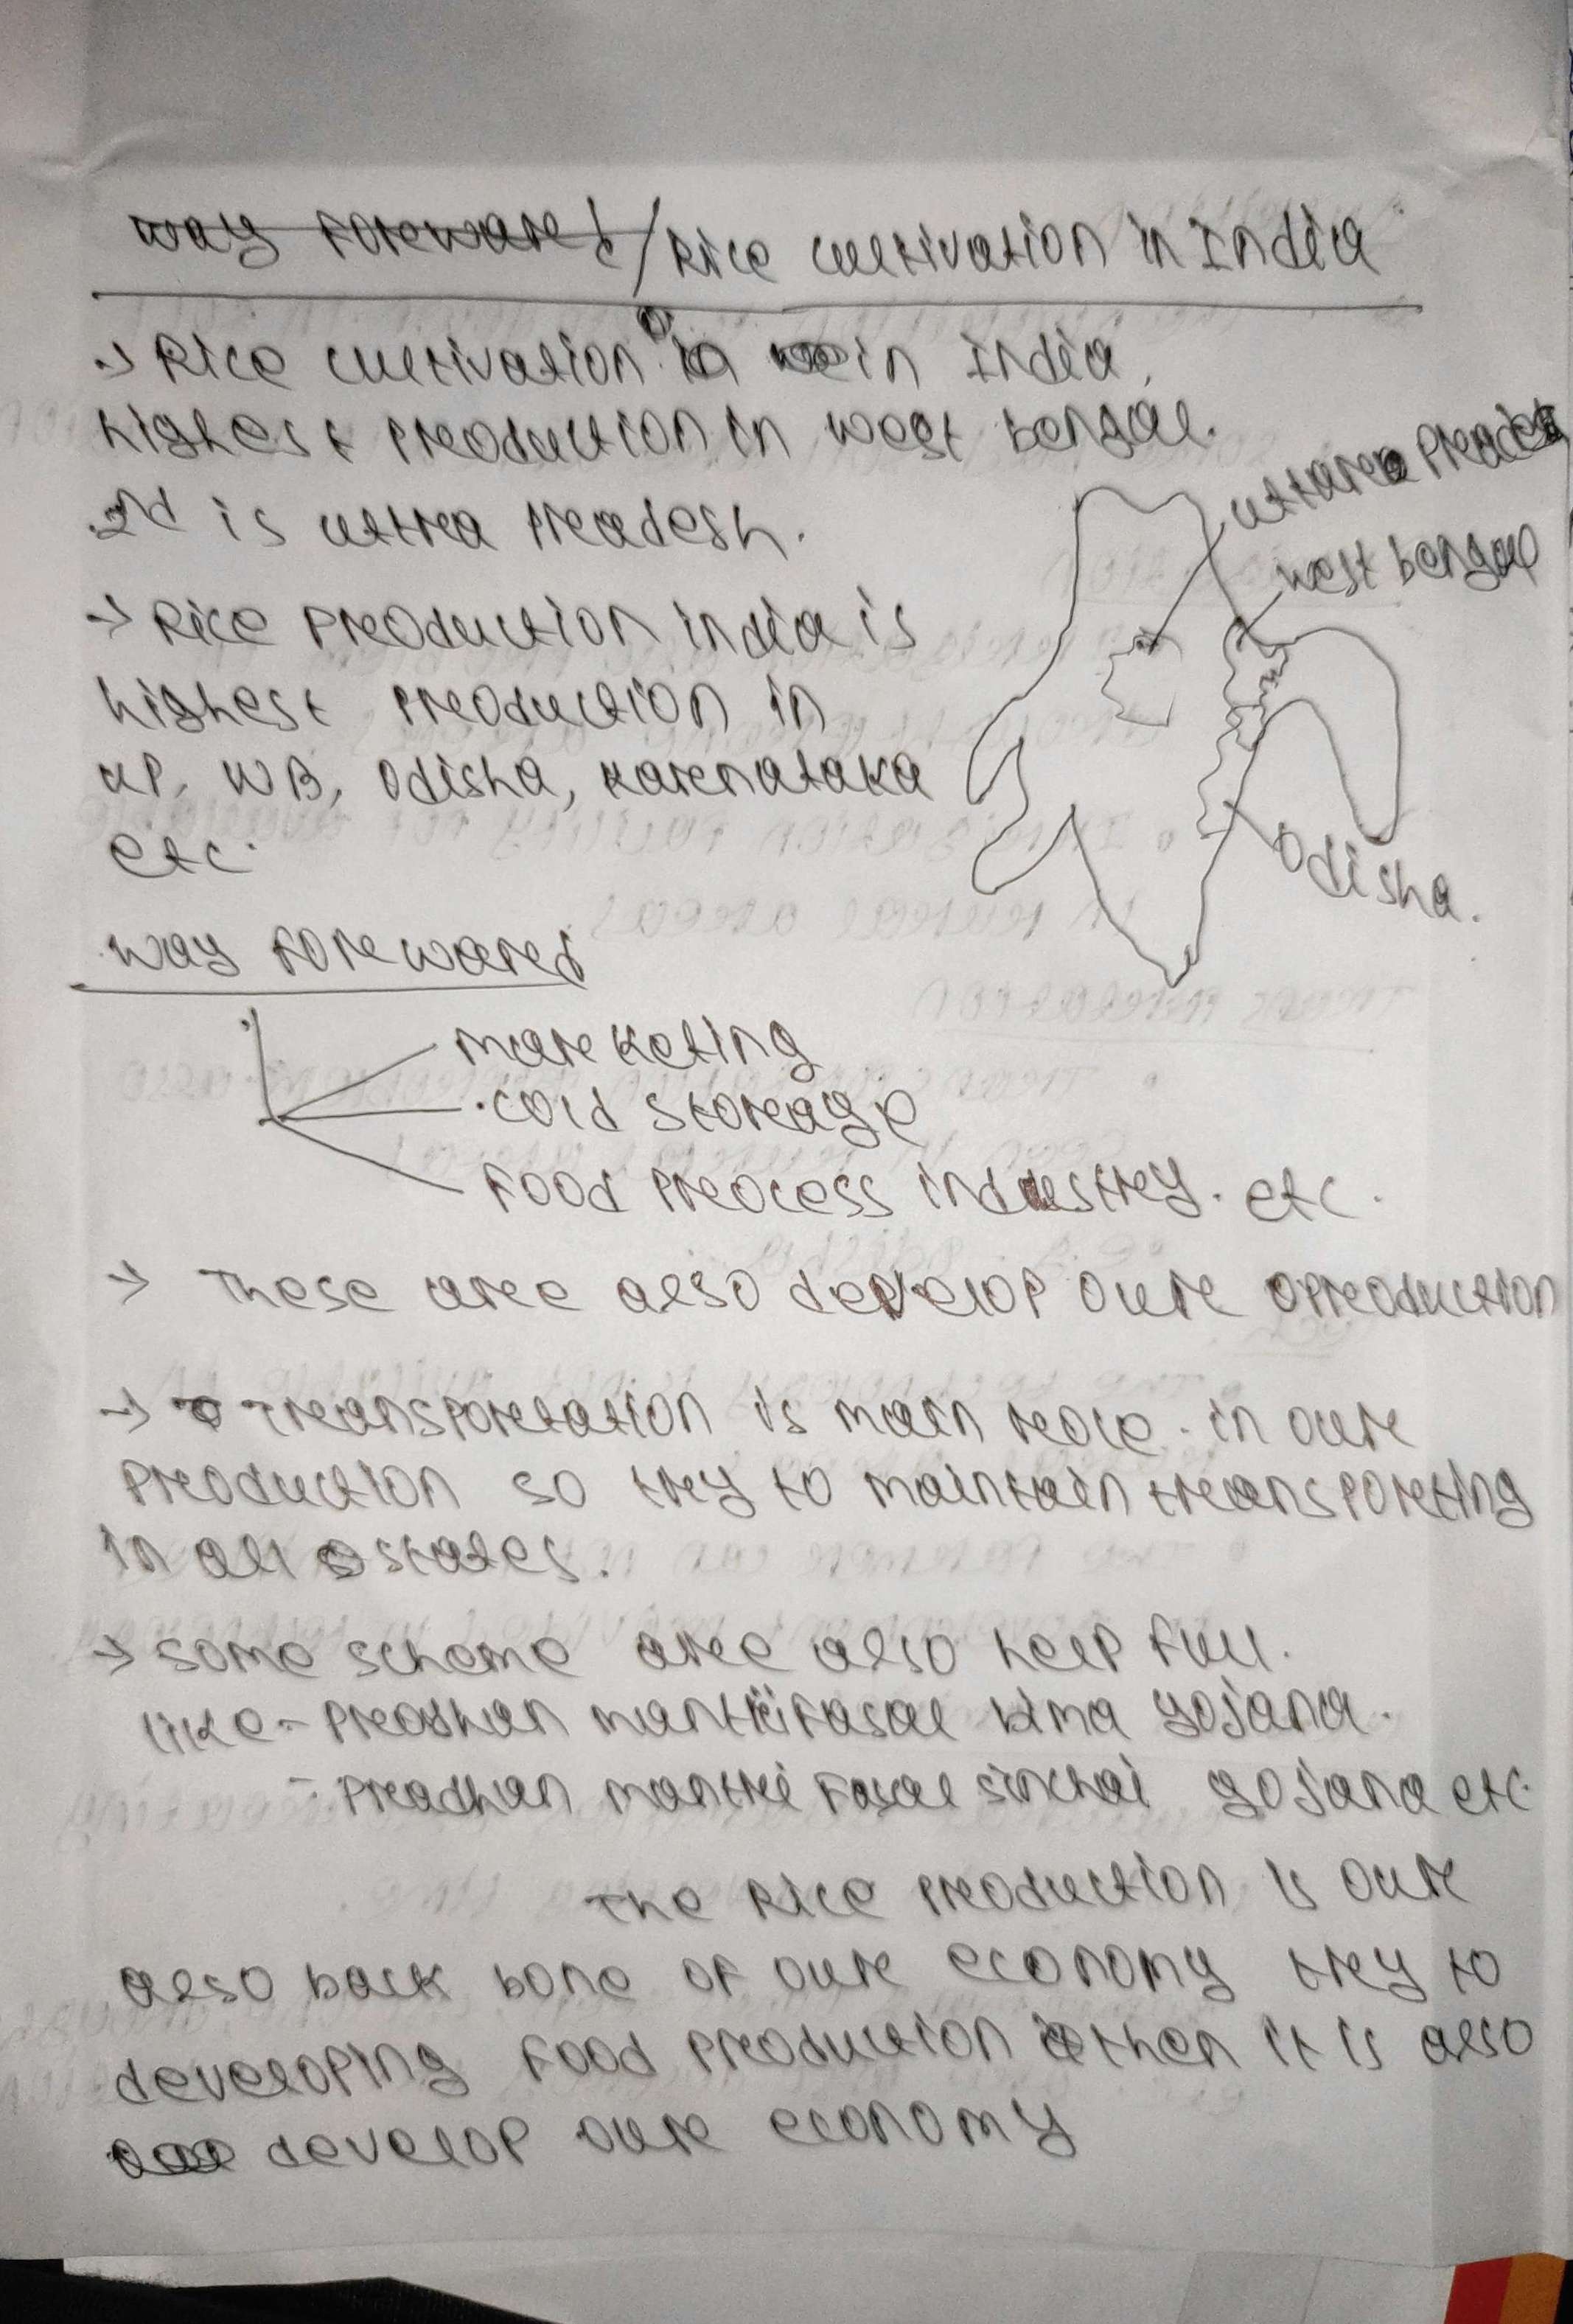 way foreward / Rice cultivation in India
→ Rice cultivation in India,
highest production in west bengal.
2nd is uttra pradesh.
→ Rice production india is
highest production in
UP, WB, Odisha, Karenataka
etc.
uttara Pradesh
west bengal
Odisha.
way foreward
mareketing
cold storeage
food process industry. etc.
→ These are also develop oure production
→ Transportation is main role. in oure
production so try to maintain transporting
in all states.
→ some scheme are also help full.
like - Pradhan mantri fasal bima yojana.
- Pradhan mantri fasal sinchai yojana etc.
The Rice production is oure
also back bone of oure economy try to
developing food production then it is also
develop oure economy